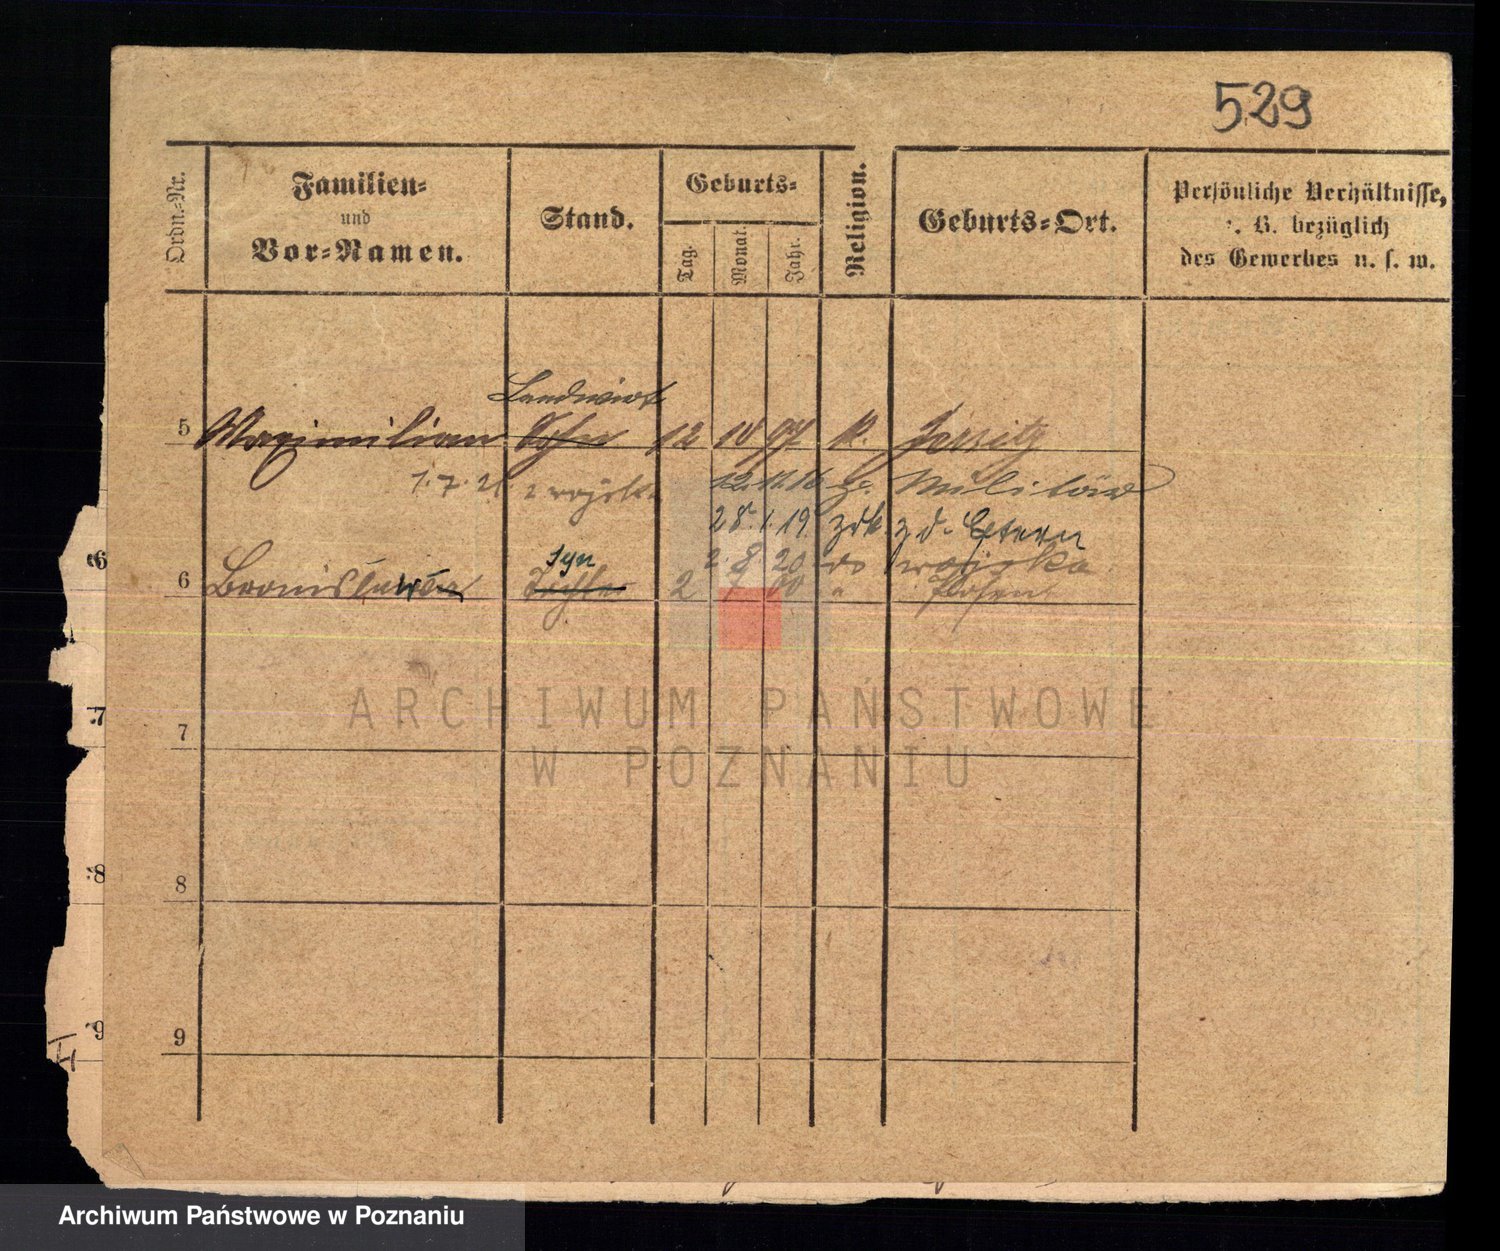 529
Ordn.-Nr.
Familien-
und
Vor-Namen.
Stand.
Geburts-
Tag.
Monat.
Jahr.
Religion.
Geburts-Ort.
Persönliche Verhältnisse,
z. B. bezüglich
des Gewerbes u. s. w.
Landwirt
5 Maximilian Sohn 12 10 97 k. Jersitz
1.7.21 z wojska 12.11.16 z. Militär
28.1.19 zdk z d. Eltern
2.8.20 do wojska
Syn
6 Bronisława Tochter 2 7 00 " Posen
7
8
9
6
7
8
9
ARCHIWUM PAŃSTWOWE
W POZNANIU
Archiwum Państwowe w Poznaniu